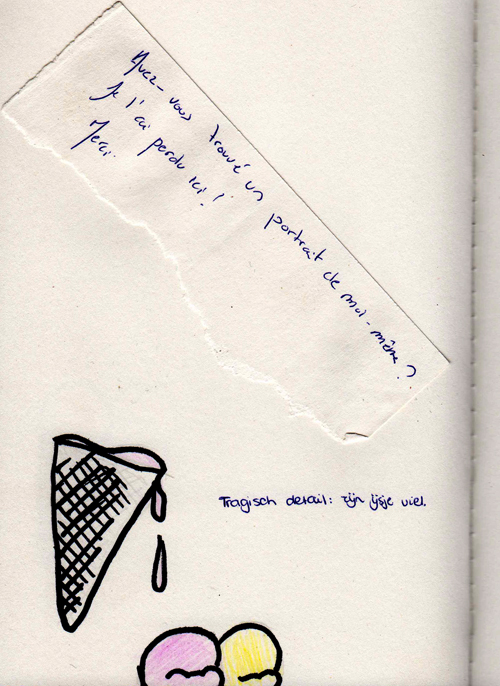 Avez-vous trouvé un portrait de moi-même?
Je l'ai perdu ici!
Merci.
Tragisch detail: zijn ijsje viel.